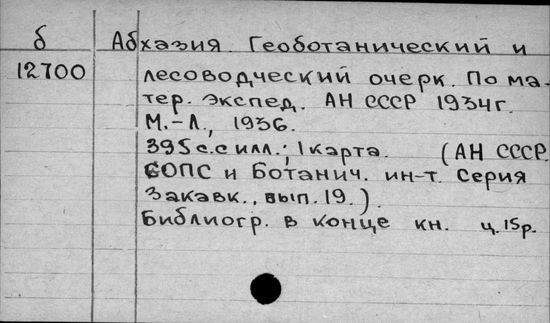 б Абхазия. Геоботанический и
12700 лесоводческий очерк. По ма-
тер. экспед. АН СССР 1934г.
М.-Л., 1936.
395с. с илл.; 1 карта. (АН СССР.
СОПС и Ботанич. ин-т. Серия
Закавк., вып. 19.).
Библиогр. в конце кн. ц. 15р.